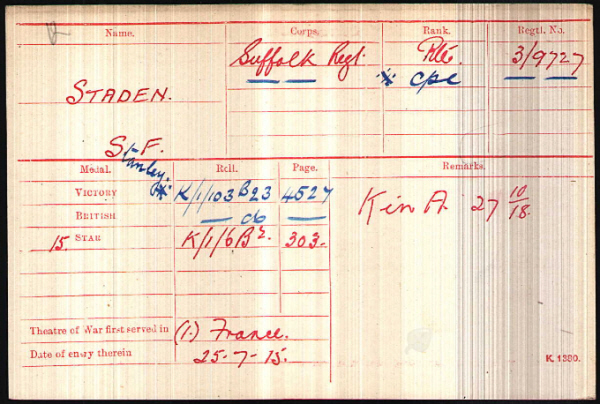 Name. Corps. Rank. Regtl. No.
Suffolk Regt. Pte. 3/9727
STADEN. * Cpl
S. F.
Stanley.
Medal. Roll. Page. Remarks.
VICTORY * K/1/103 B23 4527 Kin A. 27 10/18.
BRITISH — do —
15 STAR K/1/6 B2. 303.
Theatre of War first served in (1.) France.
Date of entry therein 25-7-15.
K. 1380.